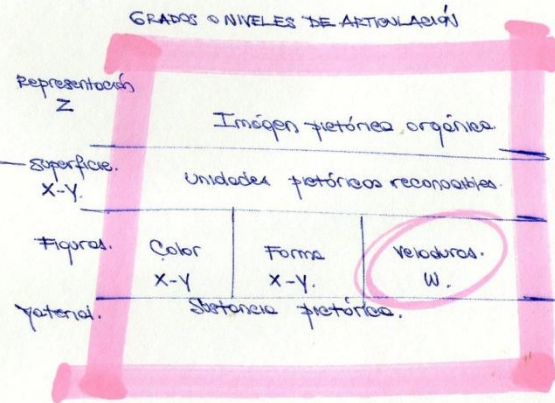 GRADOS O NIVELES DE ARTICULACIÓN
Representación
Z
Imágen pictórica orgánica.
Superficie.
X-Y.
Unidades pictóricas reconocibles.
Figuras.
Color
X-Y
Forma
X-Y.
Veladuras.
W.
Material.
Sustancia pictórica.